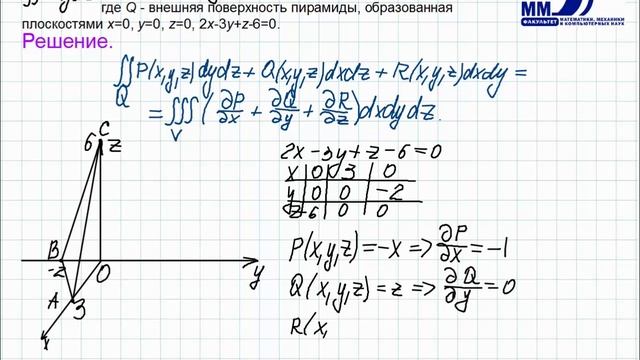 где Q - внешняя поверхность пирамиды, образованная
плоскостями x=0, y=0, z=0, 2x-3y+z-6=0.
ММ
ФАКУЛЬТЕТ
МАТЕМАТИКИ, МЕХАНИКИ
И КОМПЬЮТЕРНЫХ НАУК
Решение.
∬P(x,y,z)dydz+Q(x,y,z)dxdz+R(x,y,z)dxdy=
Q
=∭(∂P/∂x+∂Q/∂y+∂R/∂z)dxdydz.
V
C
6 z
2x-3y+z-6=0
x 0 3 0
y 0 0 -2
z 6 0 0
B
-2 O y
A 3
x
P(x,y,z)=-x=>∂P/∂x=-1
Q(x,y,z)=z=>∂Q/∂y=0
R(x,